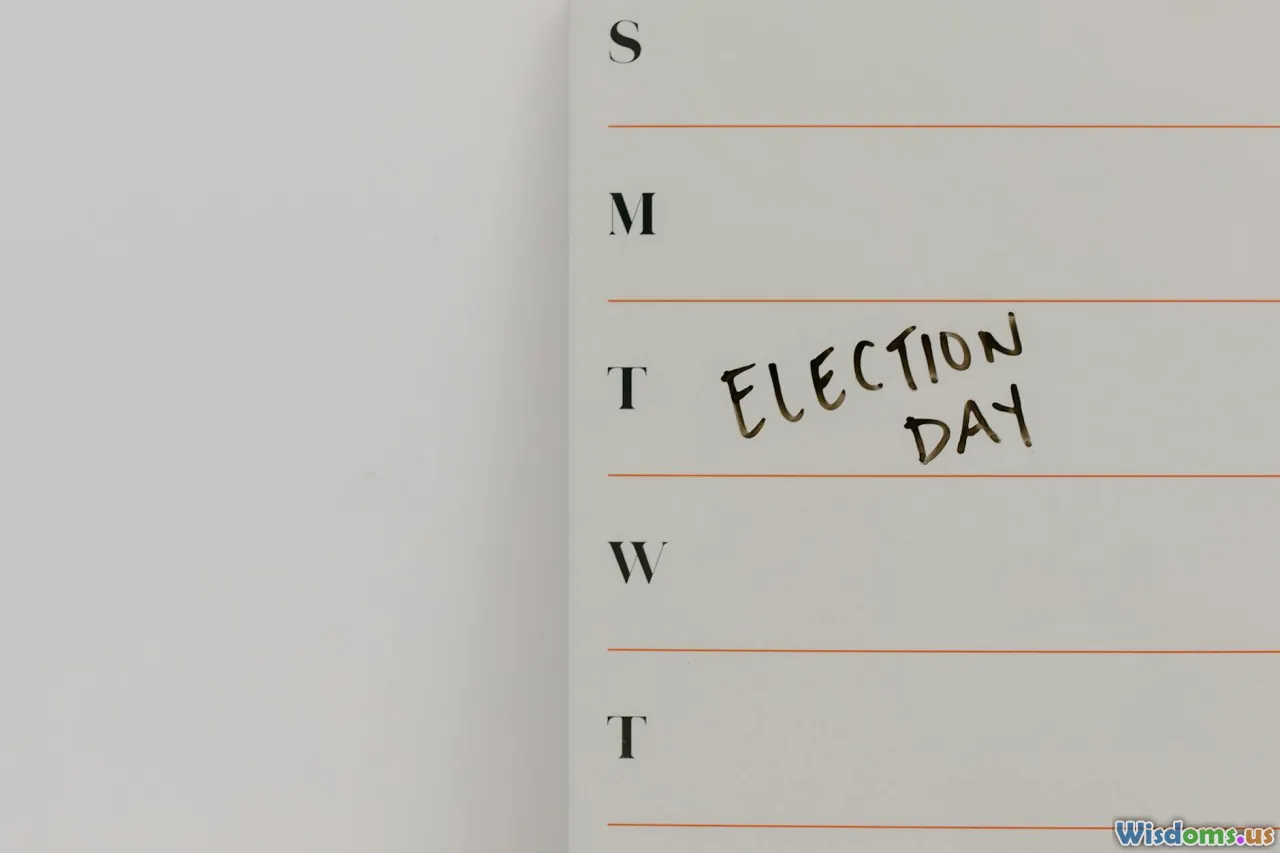 S
M
T ELECTION
DAY
W
T
Wisdoms.us